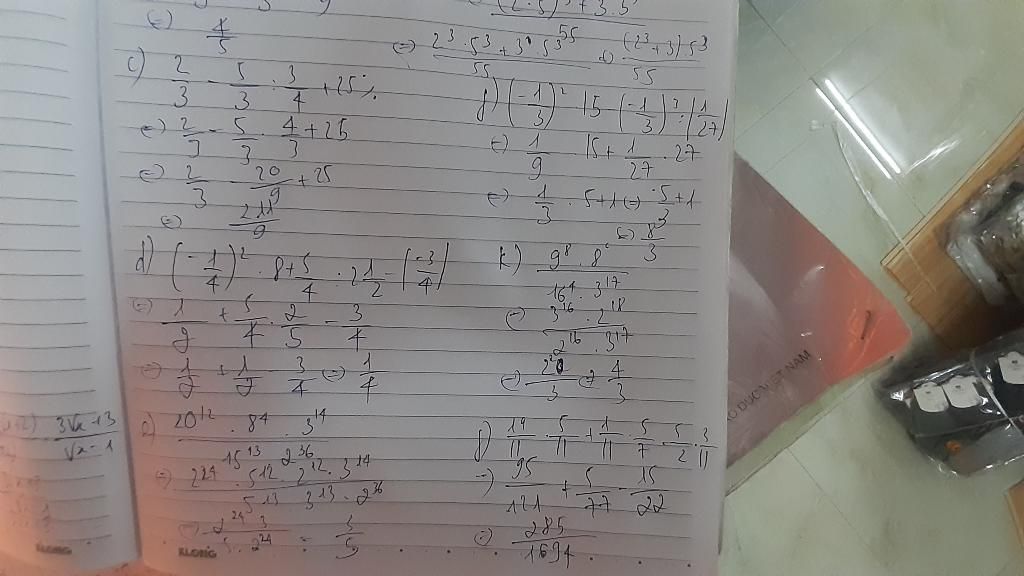 <=> 4/5
c) 2/3 - 5/3 : 3/4 + 25
<=> 2/3 - 5/3 . 4/3 + 25
<=> 2/3 - 20/9 + 25
<=> 211/9
d) (-1/4)² . 8 + 5/4 : 2 1/2 - |-3/4|
<=> 1/2 + 5/4 . 2/5 - 3/4
<=> 1/2 + 1/2 - 3/4 <=> 1/4
e) 20¹² . 8⁴ . 3¹⁴ / 15¹³ . 2³⁶
<=> 2²⁴ . 5¹² . 2¹² . 3¹⁴ / 5¹³ . 3¹³ . 2³⁶
= 3/5
2³ . 5³ + 3 . 5³ / 55
(2³ + 3) 5³ / 55
f) (-1/3)² . 15 - (-1/3)³ : |1/27|
<=> 1/9 . 15 + 1/27 . 27
<=> 1/3 . 5 + 1 <=> 5/3 + 1
<=> 8/3
k) 9⁸ . 8⁶ / 16⁴ . 3¹⁷
<=> 3¹⁶ . 2¹⁸ / 2¹⁶ . 3¹⁷
<=> 2²/3 <=> 4/3
f) 19/11 . 5/11 + 1/11 . 5/7 - 5/2 . 3/11
<=> 95/121 + 5/77 - 15/22
<=> 285/1694
3√x + 3
√x - 1
KLONG
KLONG
O DỤC VIỆT NAM